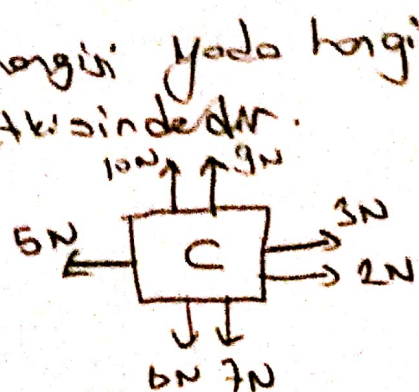 hangisi yada hangi
tkisindedir.
10N 9N
5N C 3N
2N
6N 7N